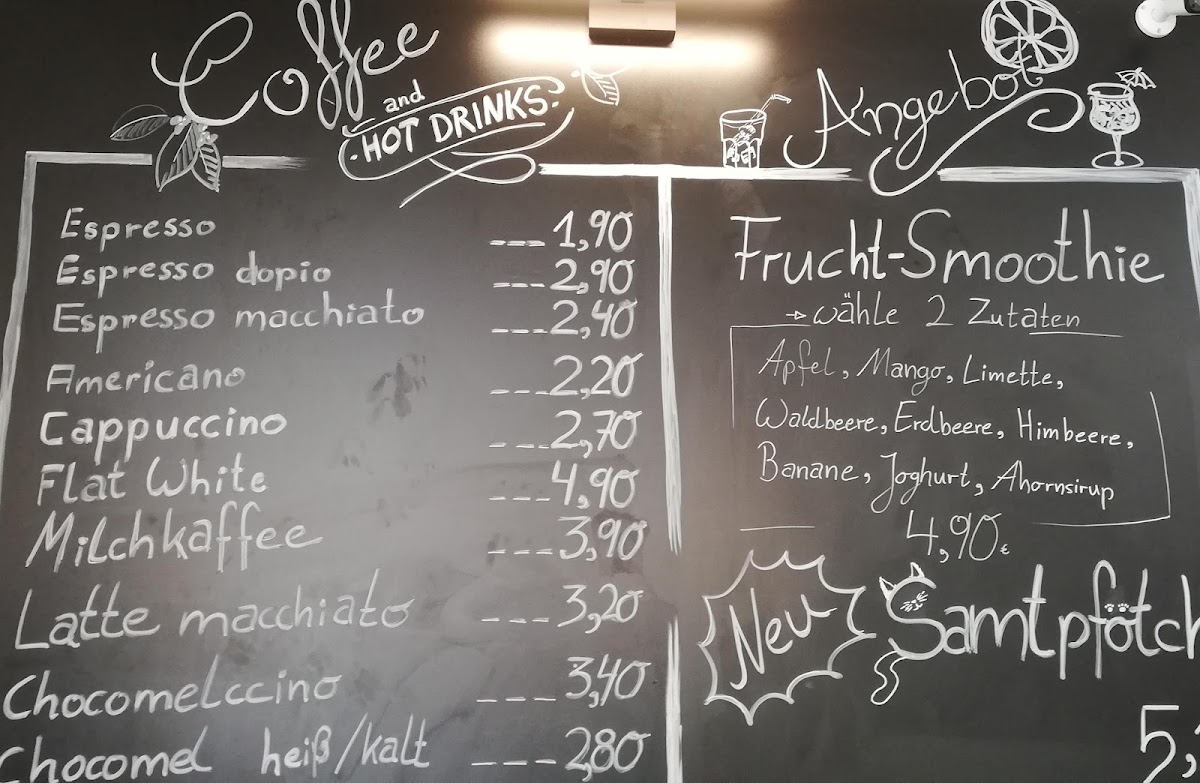 Coffee
and
HOT DRINKS
Espresso ---1,90
Espresso dopio ---2,90
Espresso macchiato ---2,40
Americano ---2,20
Cappuccino ---2,70
Flat White ---4,90
Milchkaffee ---3,90
Latte macchiato ---3,20
Chocomelccino ---3,40
Chocomel heiß/kalt ---2,80
Angebot
Frucht-Smoothie
→ wähle 2 Zutaten
Apfel, Mango, Limette,
Waldbeere, Erdbeere, Himbeere,
Banane, Joghurt, Ahornsirup
4,90€
Neu
Samtpfötch
5,